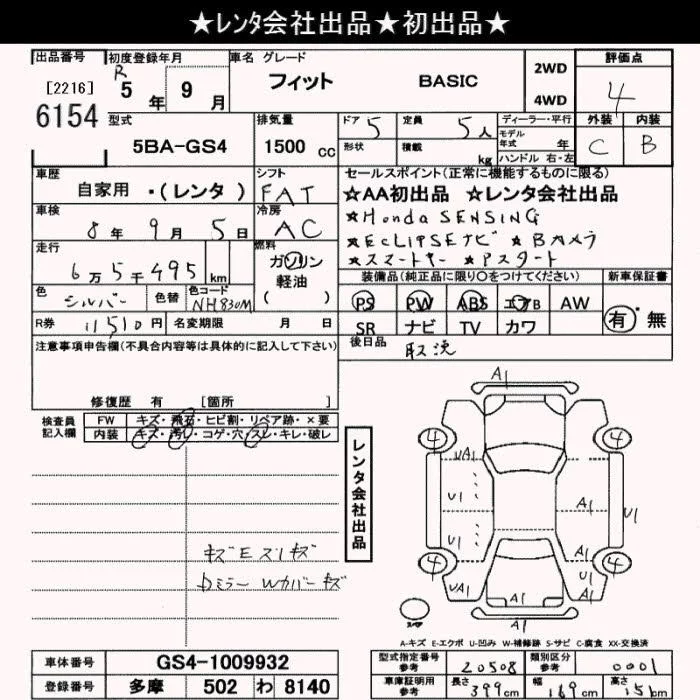 ★レンタ会社出品★初出品★
出品番号 初度登録年月 車名 グレード 2WD 評価点
[2216] R 5年 9月 フィット BASIC 4WD 4
6154 型式 排気量 ドア 5 定員 5人 ディーラー・平行 外装 内装
5BA-GS4 1500cc 形状 積載 kg モデル年式 年 C B
ハンドル 右・左
車歴 シフト セールスポイント(正常に機能するものに限る)
自家用 ・(レンタ) FAT ☆AA初出品 ☆レンタ会社出品
車検 冷房 ★Honda SENSING
8年 9月 5日 AC ★ECLIPSEナビ ★Bカメラ
走行 燃料 ★スマートキー ★Pスタート
6万5千495km ガソリン 装備品(純正品に限り○をつけてください) 新車保証書
軽油
色 シルバー 色替 色コード NH830M ( ) PS PW ABS エアB AW 有・無
R券 11510円 名変期限 月 日 SR ナビ TV カワ
注意事項申告欄(不具合内容等は具体的に記入して下さい) 後日品 取説
修復歴 有 [箇所 ]
検査員記入欄 FW キズ・飛石・ヒビ割・リペア跡・×要
内装 キズ・汚レ・コゲ・穴・スレ・キレ・破レ
レンタ会社出品
A1
4 4
UA1 A1
U1 A1 U1
U1 A1
4 4
UA1 A1 A1
A1
スペア
キズEスレキズ
Wカバーキズ
A-キズ E-エクボ U-凹み W-補修跡 S-サビ C-腐食 XX-交換済
車体番号 GS4-1009932 型式指定番号参考 20508 類別区分参考 0001
登録番号 多摩 502 わ 8140 車庫証明用参考 長さ 399cm 幅 169cm 高さ 151cm